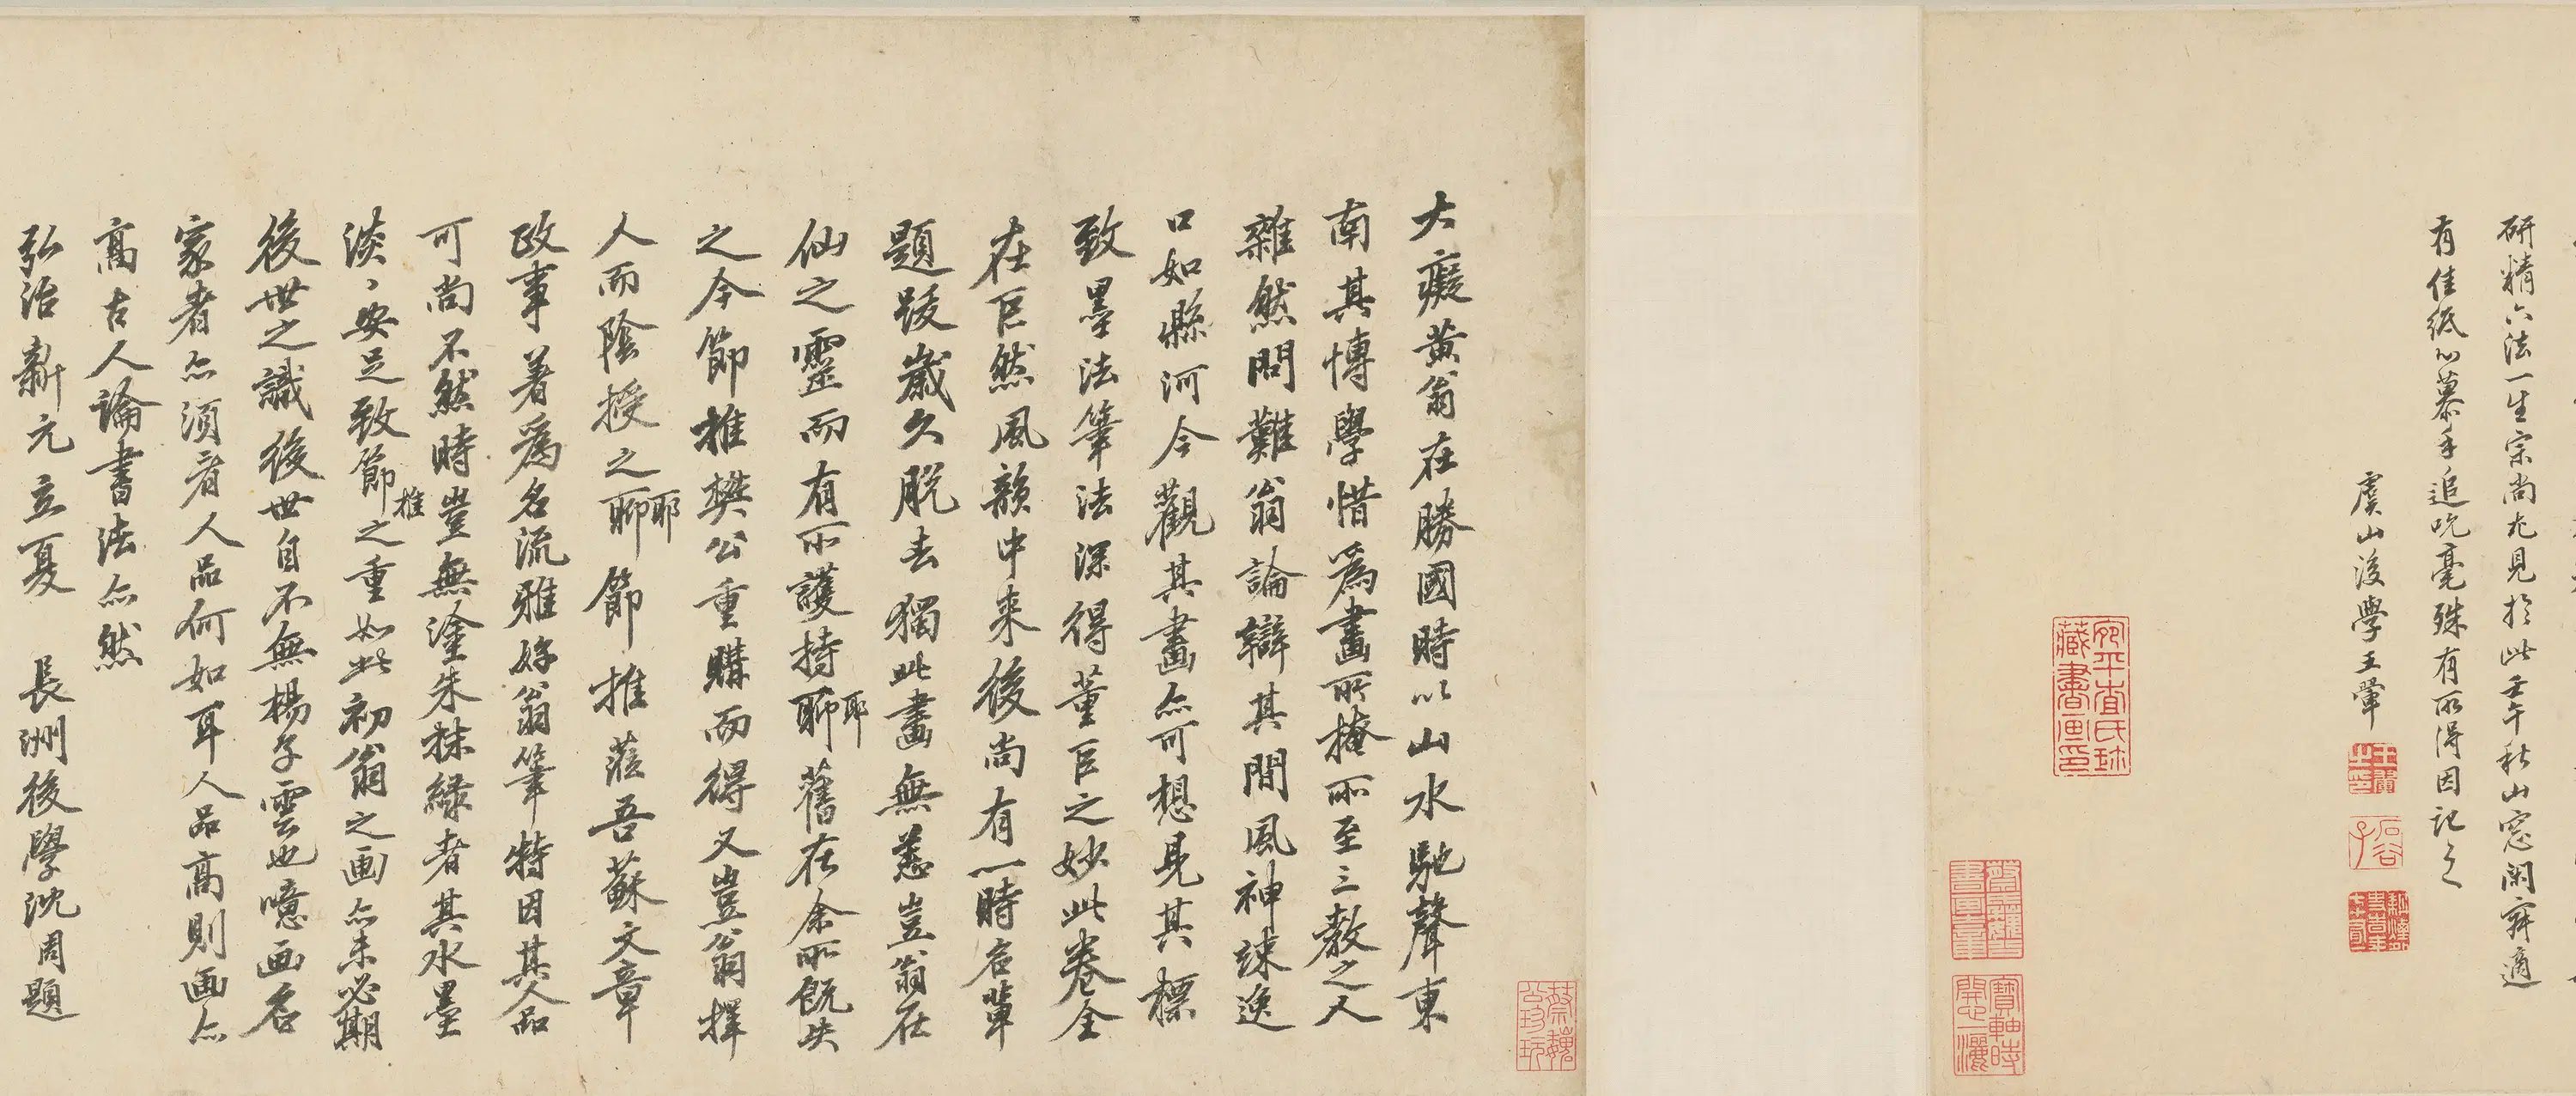 研精六法一生宗尚尤見於此壬午秋山窓閑寂適
有佳紙心摹手追吮毫殊有所得因記之
虞山後學王翬
宛平查氏珍
藏書画印
寶軸時
開心一灑
蔡魏
公珍玩
大癡黃翁在勝國時以山水馳聲東
南其博學惜為畫所掩所至三教之人
雜然問難翁論辯其間風神竦逸
口如縣河今觀其畫亦可想見其標
致墨法筆法深得董巨之妙此卷全
在巨然風韻中来後尚有一時名輩
題跋歲久脫去獨此畫無恙豈翁在
仙之靈而有所護持聊耶舊在余所既失
之今節推樊公重購而得又豈翁擇
人而陰授之聊耶節推蒞吾蘇文章
政事著為名流雅好翁筆特因其人品
可尚不然時豈無塗朱抹綠者其水墨
淡、安足致節推之重如此初翁之画亦未必期
後世之識後世自不無楊子雲也噫画名
家者亦須看人品何如耳人品高則画亦
高古人論書法亦然
弘治新元立夏 長洲後學沈周題